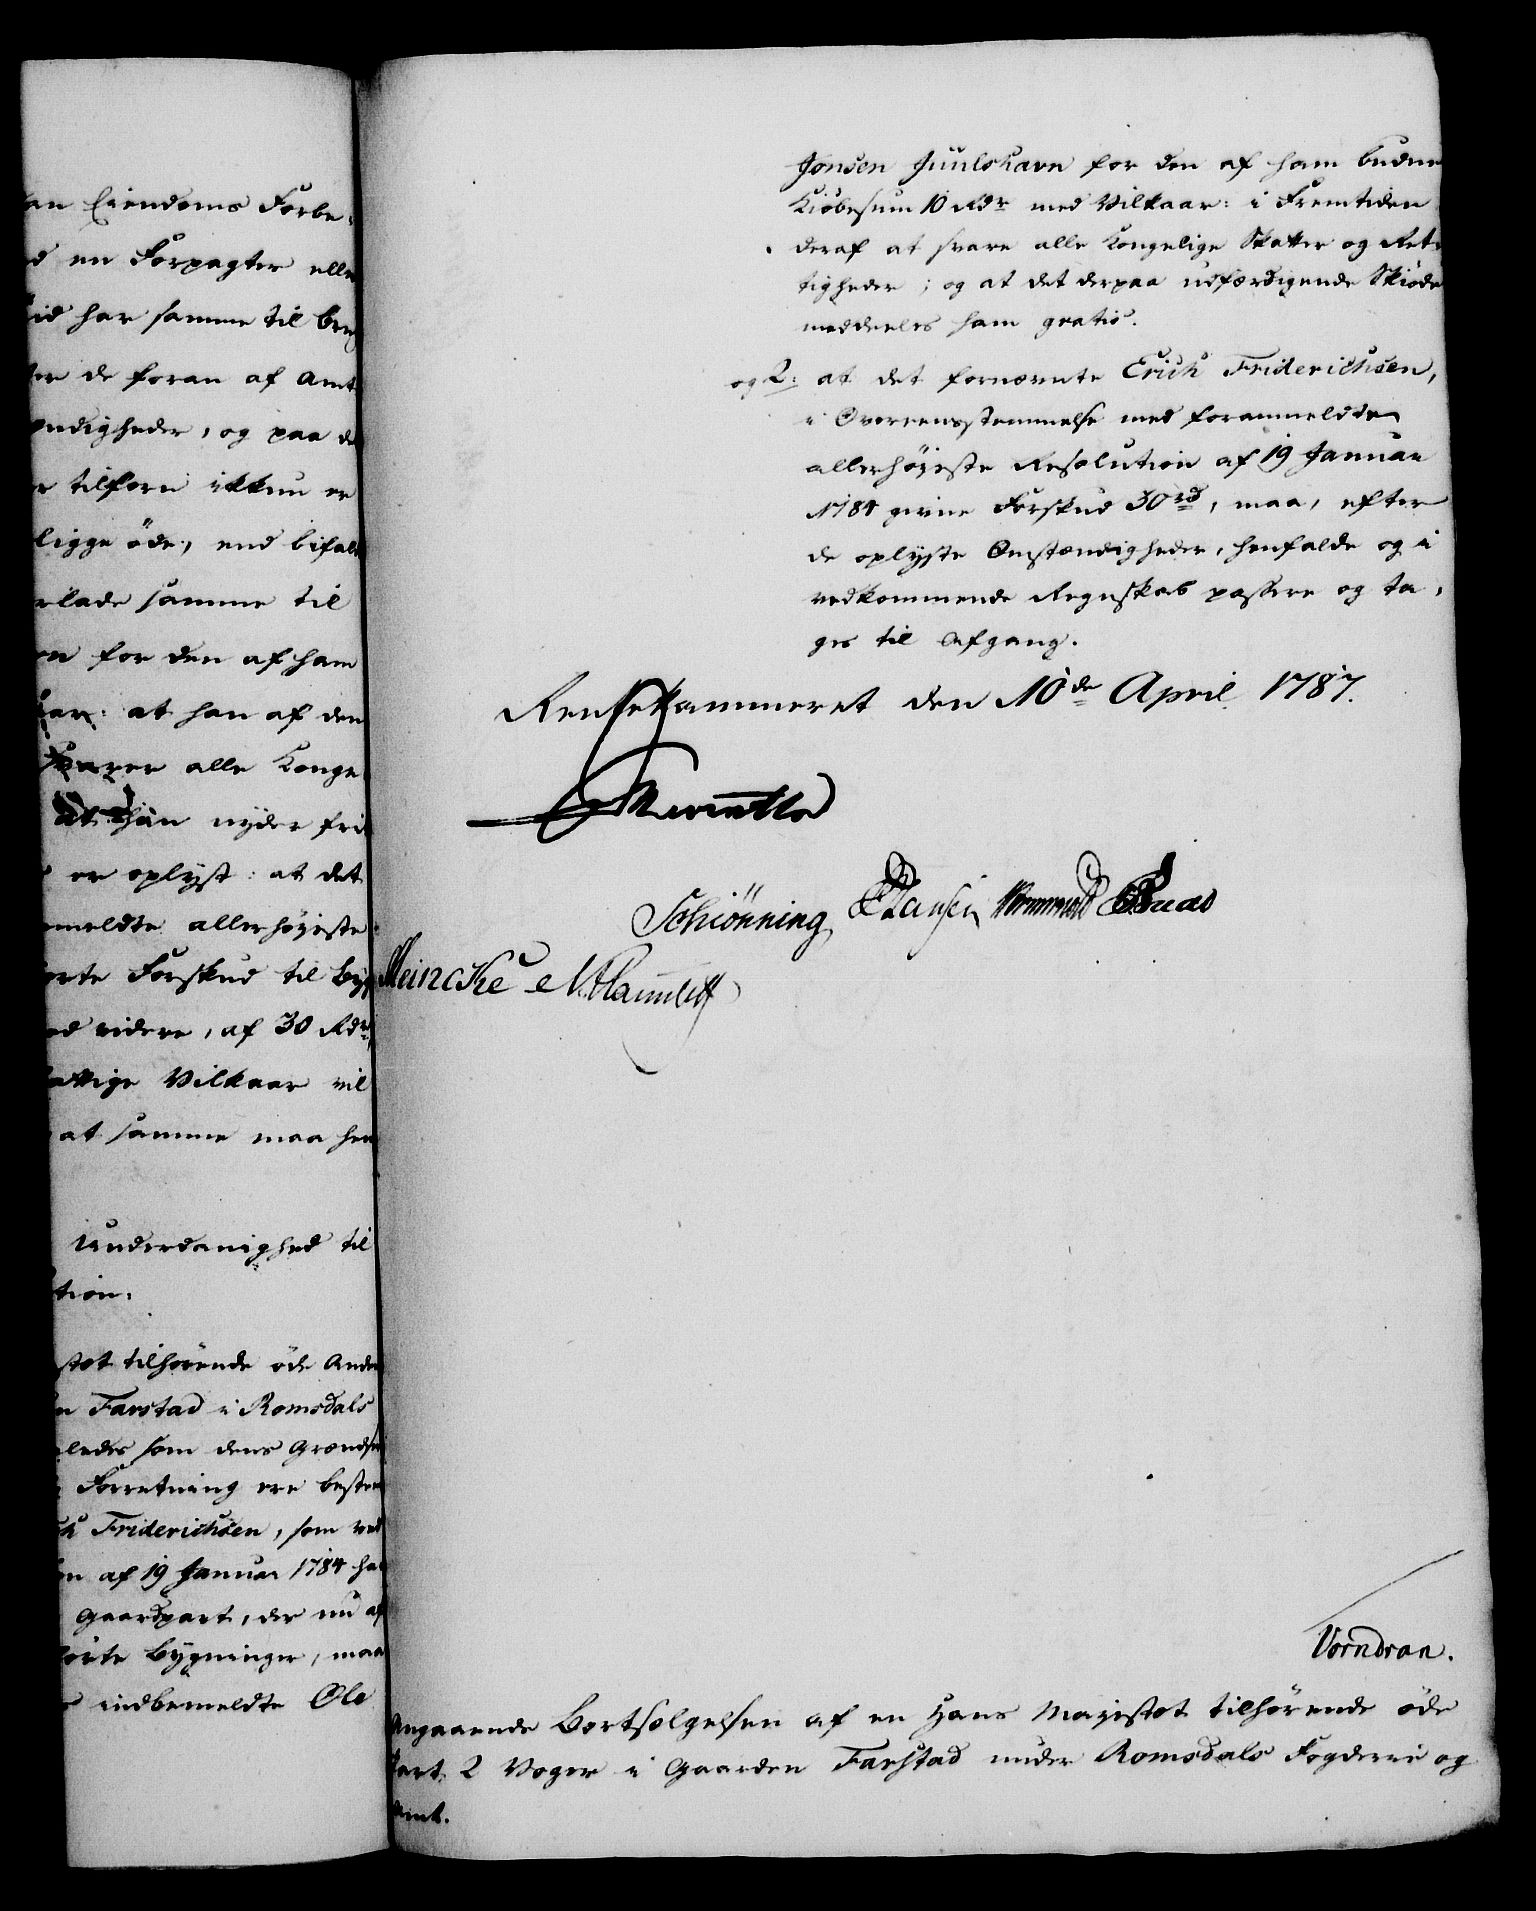 an Eiendoms Forbe-
d en Forpagter elle
tid har samme til bru
ter de foran af Amt
ændigheder, og paa de
r tilforn ikkun er
ligge öde, end bifal
rlade samme til
on for den af ham
aar: at han af den
svarer alle Konge
at han nyder fri
er oplyst: at det
emeldte allerhöyeste
Forskud til Byg
ed videre, af 30 Rdr
attige Vilkaar vil
at samme maa hen
Underdanighed til
tion:
stet tilhörende öde Ande
n Farstad i Romsdals
ledes som dens Grændse
Forretning ere bestem
ch Friderichsen, som ved
on af 19 Januar 1784 ha
Gaardpart, der nu af
förte Bygninger, maa
indbemeldte Ole
Jonsen Juulshavn for den af ham budne
Kiöbesum 10 Rdr med Vilkaar: i Fremtiden
deraf at svare alle Kongelige Skatter og Ret-
tigheder; og at det derpaa udfærdigende Skiöde
meddeeles ham gratis.
og 2: at det fornævnte Erich Friderichsen,
i Overeensstemmelse med foranmeldte
allerhöyeste Resolution af 19 Januar
1784 givne Forskud 30 rd, maa, efter
de oplyste Omstændigheder, henfalde og i
vedkommende Regnskab passere og ta-
ges til Afgang.
Rentekammeret den 10de April 1787.
Schiönning Hansen
Meincke
Vorndran.
Angaaende Bortsælgelsen af en Hans Mayestet tilhörende öde
Part, 2 Voger i Gaarden Farstad under Romsdals Fogderie og
Amt.